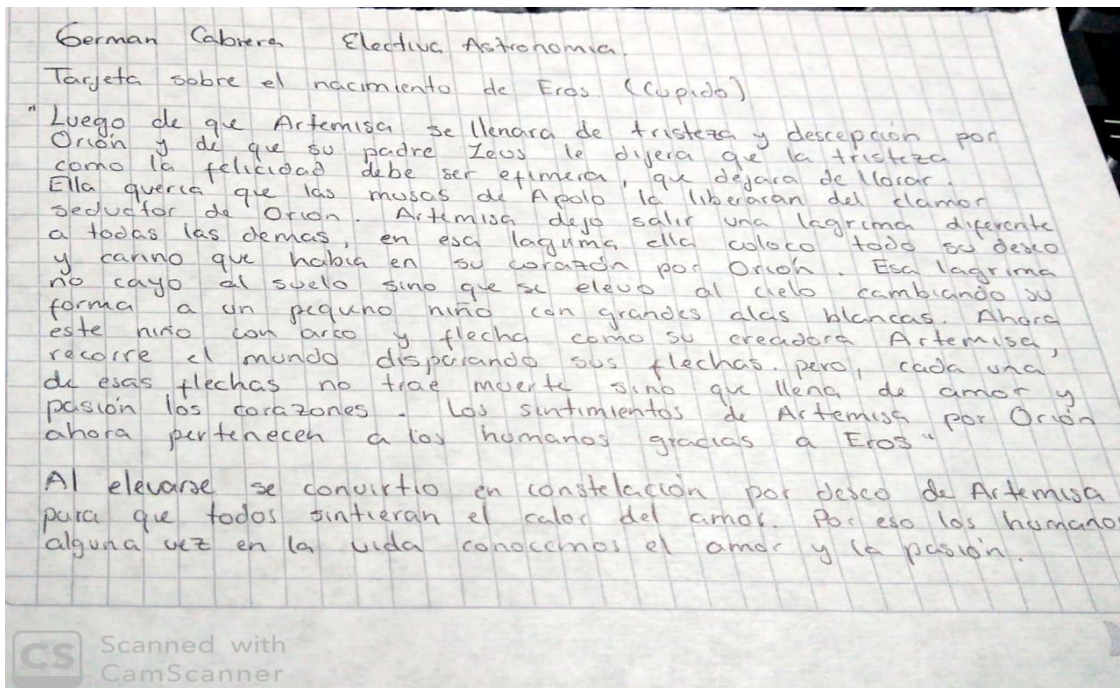 German Cabrera Electiva Astronomia.
Tarjeta sobre el nacimiento de Eros (Cupido)
"Luego de que Artemisa se llenara de tristeza y descepción por
Orión y de que su padre Zeus le dijera que la tristeza
como la felicidad debe ser efimera, que dejara de llorar.
Ella queria que las musas de Apolo la liberaran del clamor
seductor de Orion. Artemisa dejo salir una lagrima diferente
a todas las demas, en esa laguima ella coloco todo su deseo
y cariño que habia en su corazón por Orion. Esa lagrima
no cayo al suelo sino que se elevo al cielo cambiando su
forma a un pequeno niño con grandes alas blancas. Ahora
este niño con arco y flecha como su creadora Artemisa,
recorre el mundo disparando sus flechas. pero, cada una
de esas flechas no trae muerte sino que llena de amor y
pasión los corazones. Los sentimientos de Artemisa por Orión
ahora pertenecen a los humanos gracias a Eros"
Al elevarse se convirtio en constelación por deseo de Artemisa
para que todos sintieran el calor del amor. Por eso los humano
alguna vez en la vida conocemos el amor y la pasión.
CS Scanned with
CamScanner